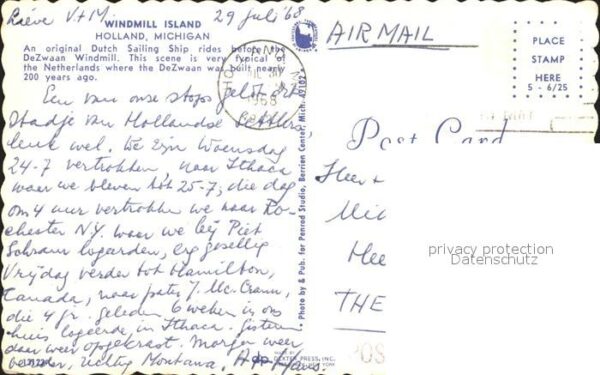 Lieve V+M.
29 Juli '68
WINDMILL ISLAND
HOLLAND, MICHIGAN
An original Dutch Sailing Ship rides before the
DeZwaan Windmill. This scene is very typical of
the Netherlands where the DeZwaan was built nearly
200 years ago.
AIR MAIL
PLACE
STAMP
HERE
5 - 6/25
1968
Een van onze stops geldt dit
Stadje van Hollandse settlers,
leuk wel. We zijn Woensdag
24-7 vertrokken, naar Ithaca
waar we bleven tot 25-7; die dag
om 4 uur vertrokken we naar Ro-
chester N.Y. waar we bij Piet
Schram logeerden, erg gezellig
Vrijdag verder tot Hamilton,
Canada, naar pater J. Mc.
die 4 jr. geleden 6 weken in ons
huis logeerde in Ithaca. Gisteren
daar weer opgekrast. Morgen weer
verder, richting Montana.
Photo by & Pub. for Penrod Studio, Berrien Center, Mich. 49102
Post Card
Heer +
Hee
THE
privacy protection
Datenschutz
MADE BY
DEXTER PRESS, INC.